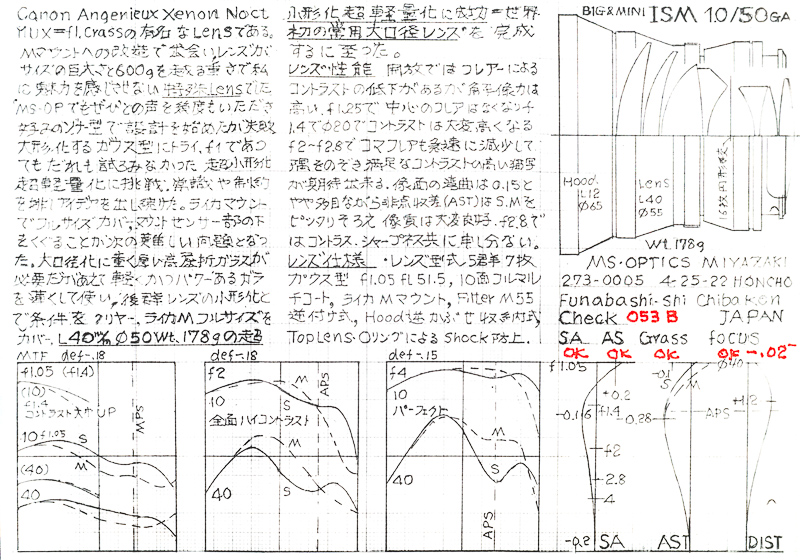 Canon Angenieux Xenon Noct
LUX=f1.Crassの有名なLensである。
Mマウントへの改造で出会いレンズが
サイズの巨大さと600gを超える重さで私
に魅力を感じさせない特殊Lensでした
MS-OPでもぜひとの声を幾度もいただき
ゾナー型で設計を始めたが失敗
大形化するガウス型にトライ。f1であっ
てもだれも試ろみなかった超小形化
超軽量化に挑戦。
を排しアイデアを出し続けた。ライカマウント
でフルサイズカバー、マウントセンサー
をくぐることが次の難しい問題となっ
た。大口径化に重く厚い高屈折ガラスが
必要だがあえて軽くかつパワーあるガラ
を薄くして使い、後群レンズの小形化と
で条件をクリヤー、ライカMフルサイズを
カバー。L40㎜ ∅50Wt.178gの超
小形化超軽量化に成功=世界
初の常用大口径レンズを完成
するに至った。
レンズ性能 開放ではフレアーによる
コントラストの低下があるが解像力は
高い、f1.25で中心のフレアはなくなりf
1.4で∅20でコントラストは大変高くなる
f2-f2.8でコマフレアも急速に減少して
隅をのぞき満足なコントラストの高い描写
が期待出来る。像面の湾曲は0.15と
やや多目ながら非点収差(AST)はS.Mを
ピッタリそろえ像質は大変良好。f2.8で
はコントラス.シャープネス共に申し分ない。
レンズ仕様 ・レンズ型式 5群7枚
ガウス型 f1.05 fl 51.5, 10面コルマル
チコート, ライカMマウント, Filter M55
逆付け式, Hood逆かぶせ収納式
TopLens・OリングによるShock防止.
BIG&MINI ISM 1.0/50 GA
Hood.
L12
∅65
Lens
L40
∅55
16枚円形絞
Wt.178g
MS-OPTICS MIYAZAKI
273-0005 4-25-22 HONCHO
Funabashi-Shi Chiba Ken
Check 053B JAPAN
SA AS Grass focus
OK OK OK OK -.02
MTF def-.18
f1.05 (f1.4)
(10)
f1.4
コントラスト大巾UP
10 f1.05 S
M
(40)
40
MPS
def-.18
f2
10
M
S
APS
全面ハイコントラスト
M
S
40
def-.15
f4
10
パーフェクト
M
S
40
APS
f1.05
+0.2
-0.16
f1.4
f2
2.8
4
-0.2 SA
-0.1
S M
-0.28
AST
∅40
+1.2
APS
DIST